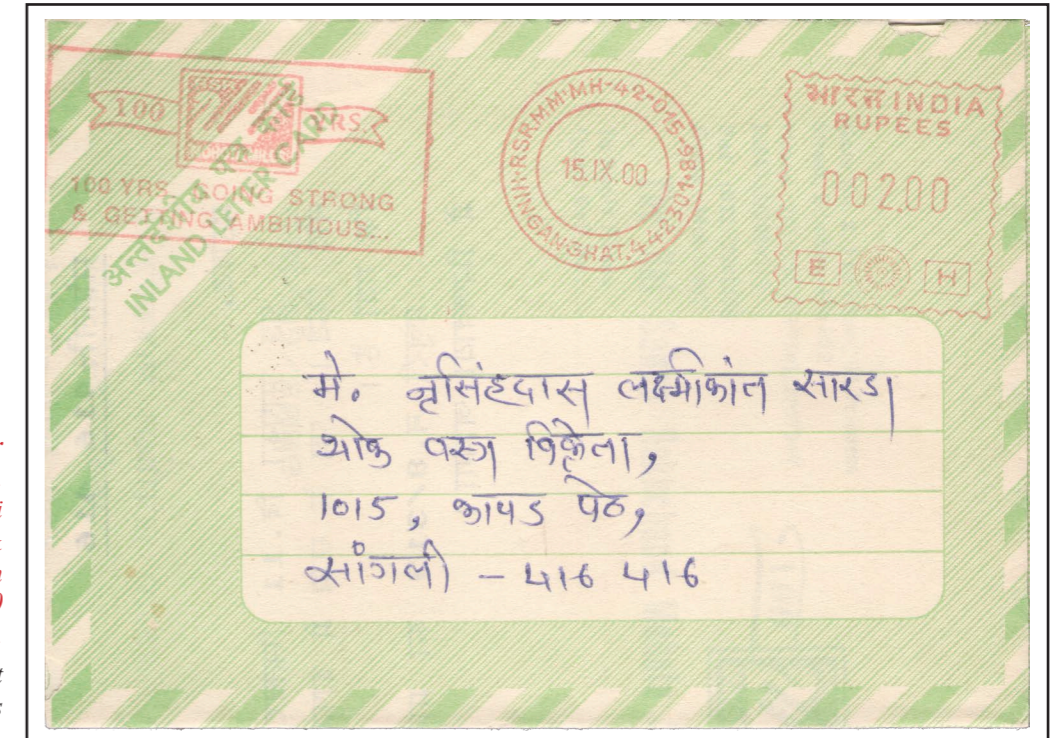 100 YRS.
100 YRS. GOING STRONG
& GETTING AMBITIOUS...
अन्तर्देशीय पत्र कार्ड
INLAND LETTER CARD
HINGANGHAT.442301
RSRMM·MH-42-015-98
15.IX.00
भारत INDIA
RUPEES
00200
E H
मे. नृसिंहदास लक्ष्मीकांत सारडा
थोक वस्त्र विक्रेता,
1015, कापड पेठ,
सांगली - 416 416